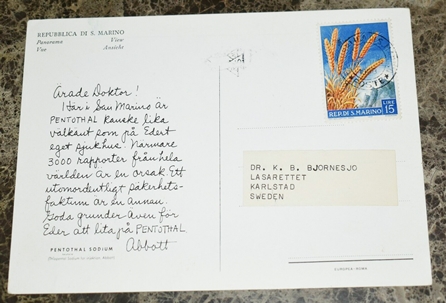 REPUBBLICA DI S. MARINO
Panorama View
Vue Ansicht
Ärade Doktor!
Här i San Marino är
PENTOTHAL kanske lika
välkänt som på Edert
eget sjukhus. Närmare
3000 rapporter från hela
världen är en orsak. Ett
utomordentligt säkerhets-
faktum är en annan.
Goda grunder även för
Eder att lita på PENTOTHAL
Abbott
PENTOTHAL SODIUM
LIRE
15
REP. DI S. MARINO
DR. K. B. BJORNESJO
LASARETTET
KARLSTAD
SWEDEN